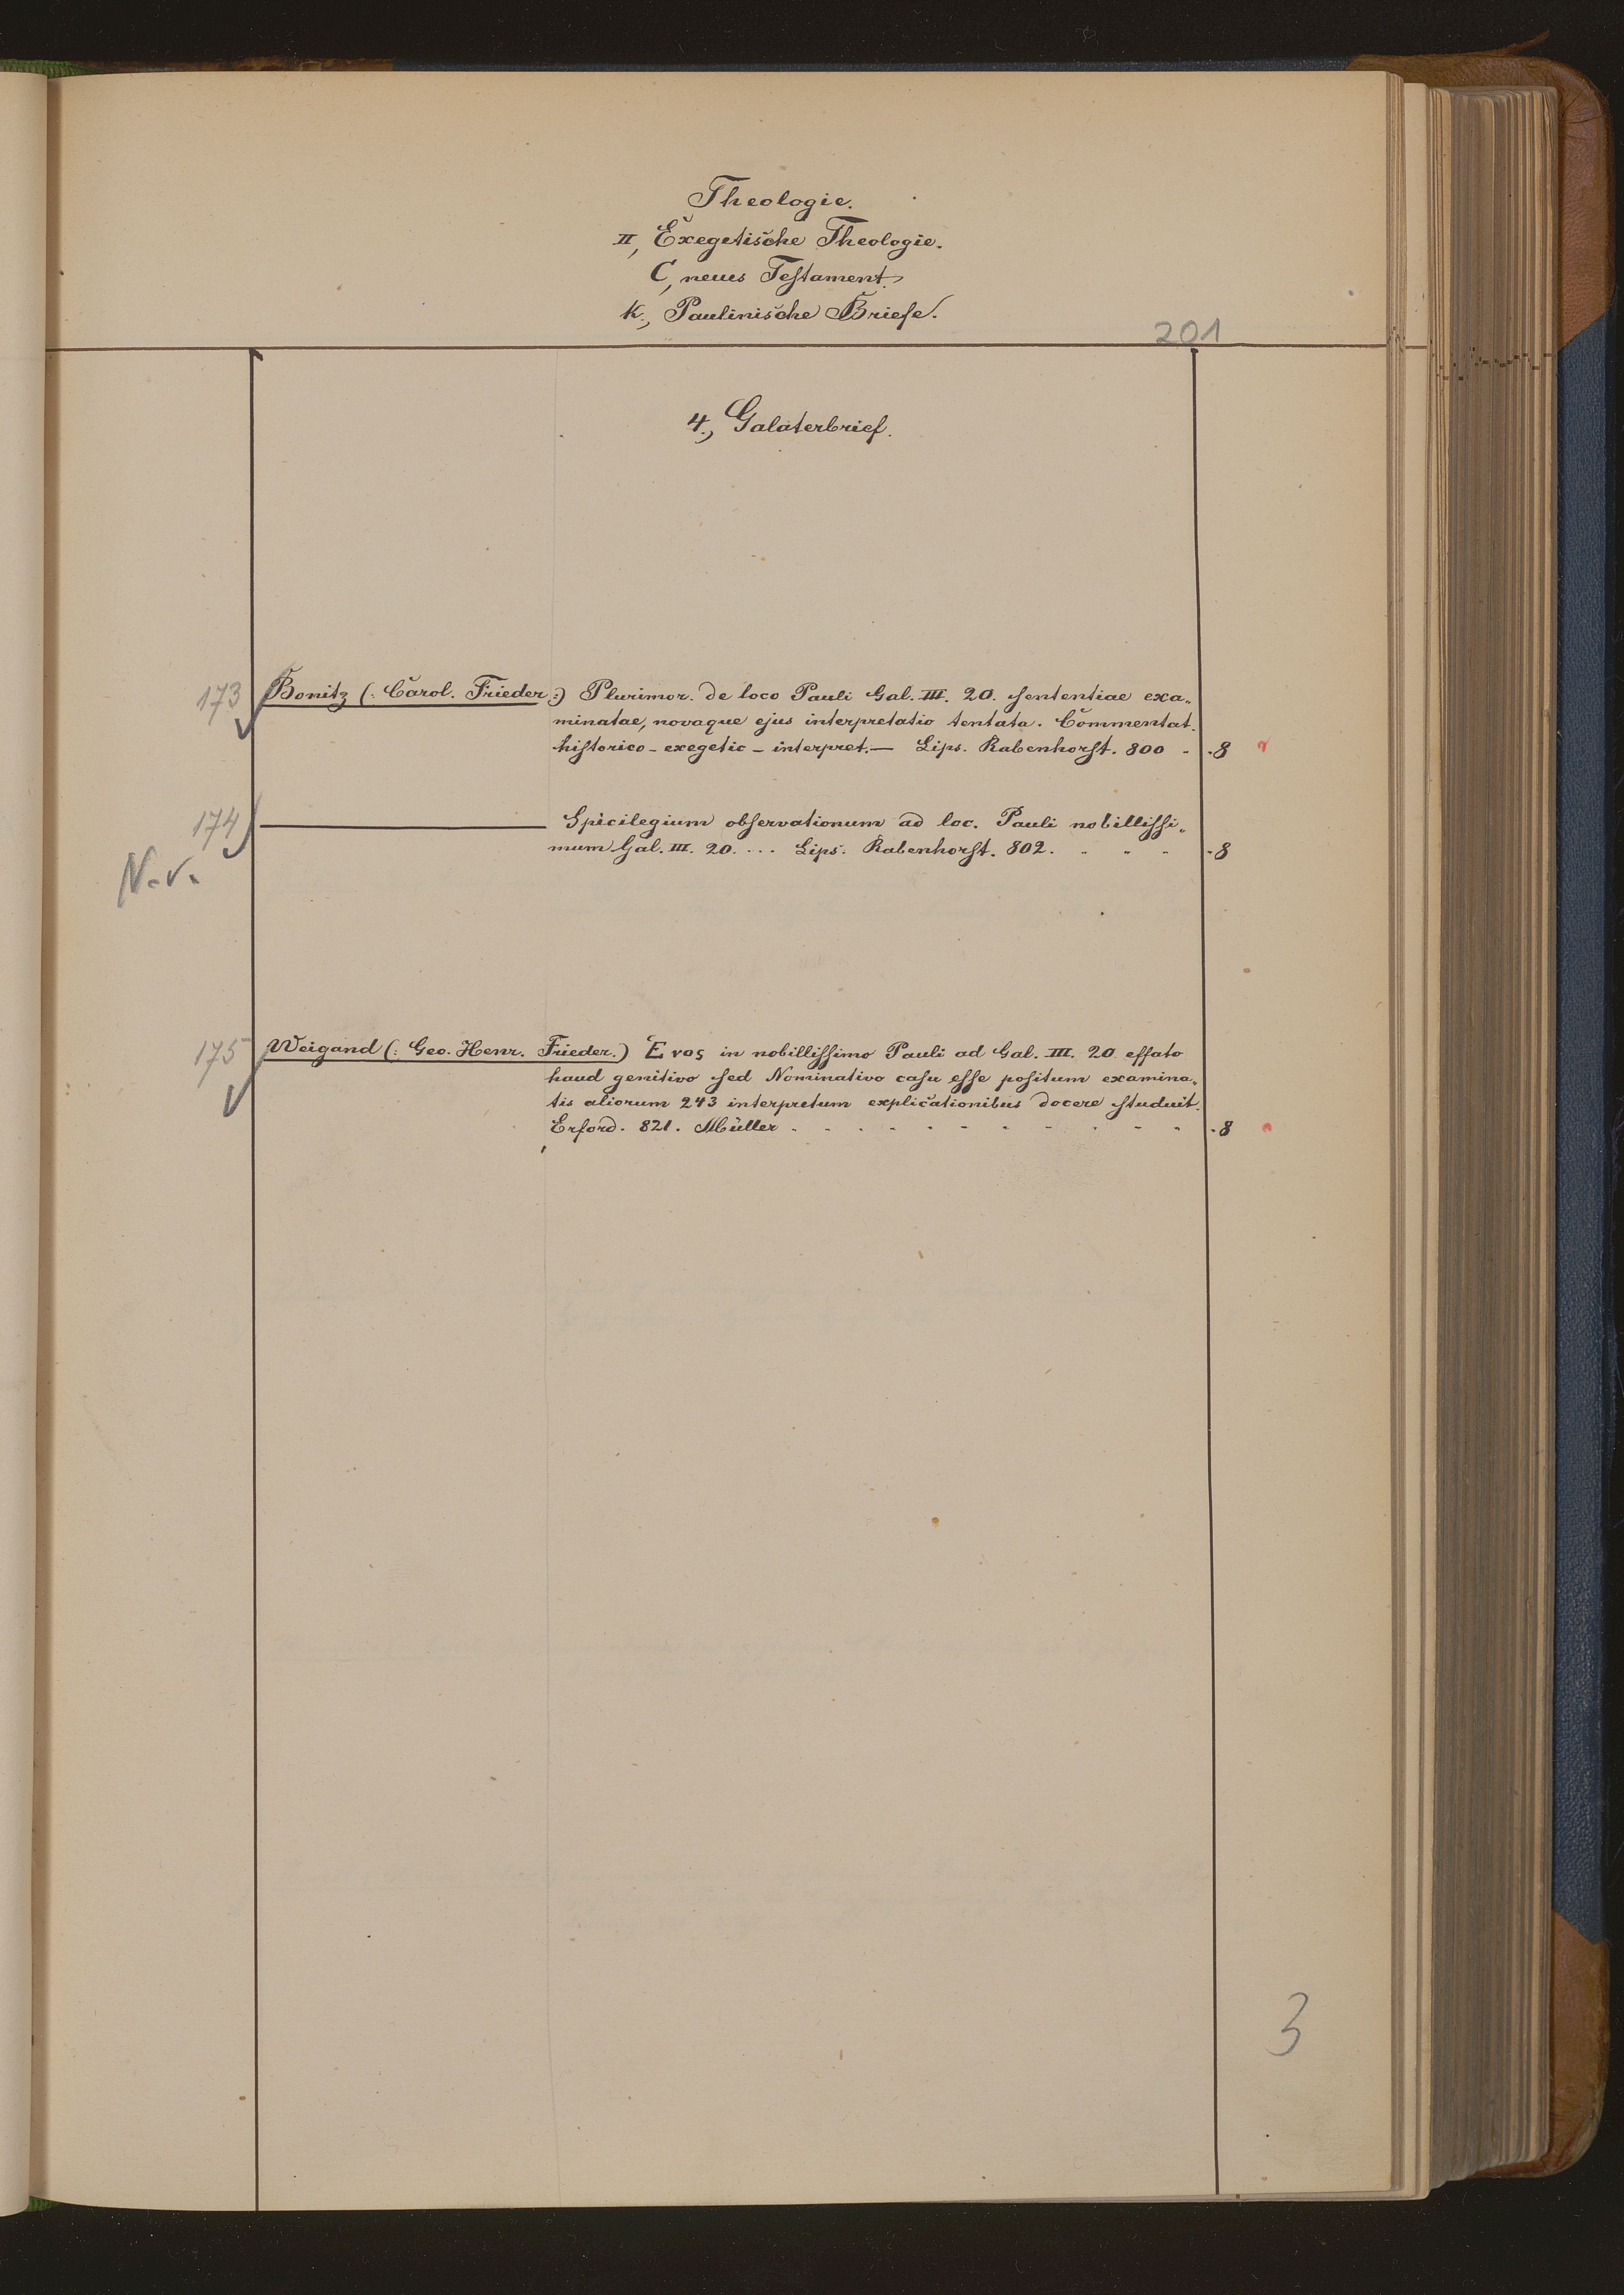 Theologie.
II, Exegetische Theologie.
C, neues Testament.
k., Paulinische Briefe.
201
4., Galaterbrief.
173 Bonitz (: Carol. Frieder :) Plurimor. de loco Pauli Gal. III. 20. sententiae exa„
minatae, novaque ejus interpretatio tentata. Commentat.
historico - exegetic - interpret. — Lips. Rabenhorst. 800 - . 8
174 ——— Spicilegium observationum ad loc. Pauli nobillissi„
mum Gal. III. 20. ... Lips. Rabenhorst. 802. - - - . 8
N.v.
175 Weigand (: Geo. Henr. Frieder.) Evos in nobillissimo Pauli ad Gal. III. 20. effato
haud genitivo sed Nominativo casu esse positum examina„
tis aliorum 243 interpretum explicationibus docere studuit.
Erford. 821. Müller - - - - - - - - - - - . 8
3